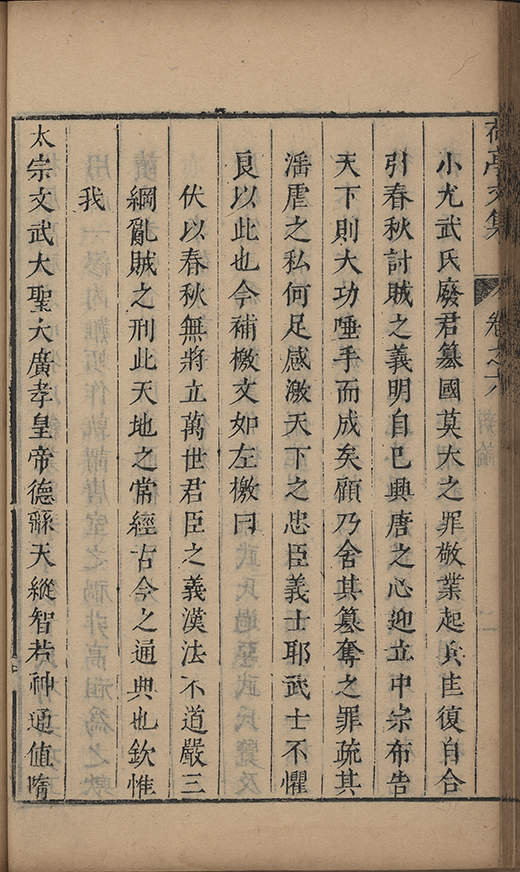 亭文集
卷之六
小尤武氏廢君簒國莫大之罪敬業起兵匡復自合
引春秋討賊之義明自己興唐之心迎立中宗布告
天下則大功唾手而成矣顧乃舍其簒奪之罪疏其
淫虐之私何足感激天下之忠臣義士耶武士不懼
良以此也今補檄文如左檄曰
伏以春秋無將立萬世君臣之義漢法不道嚴三
綱亂賊之刑此天地之常經古今之通典也欽惟
我
太宗文武大聖大廣孝皇帝德繇天縱智若神通值隋